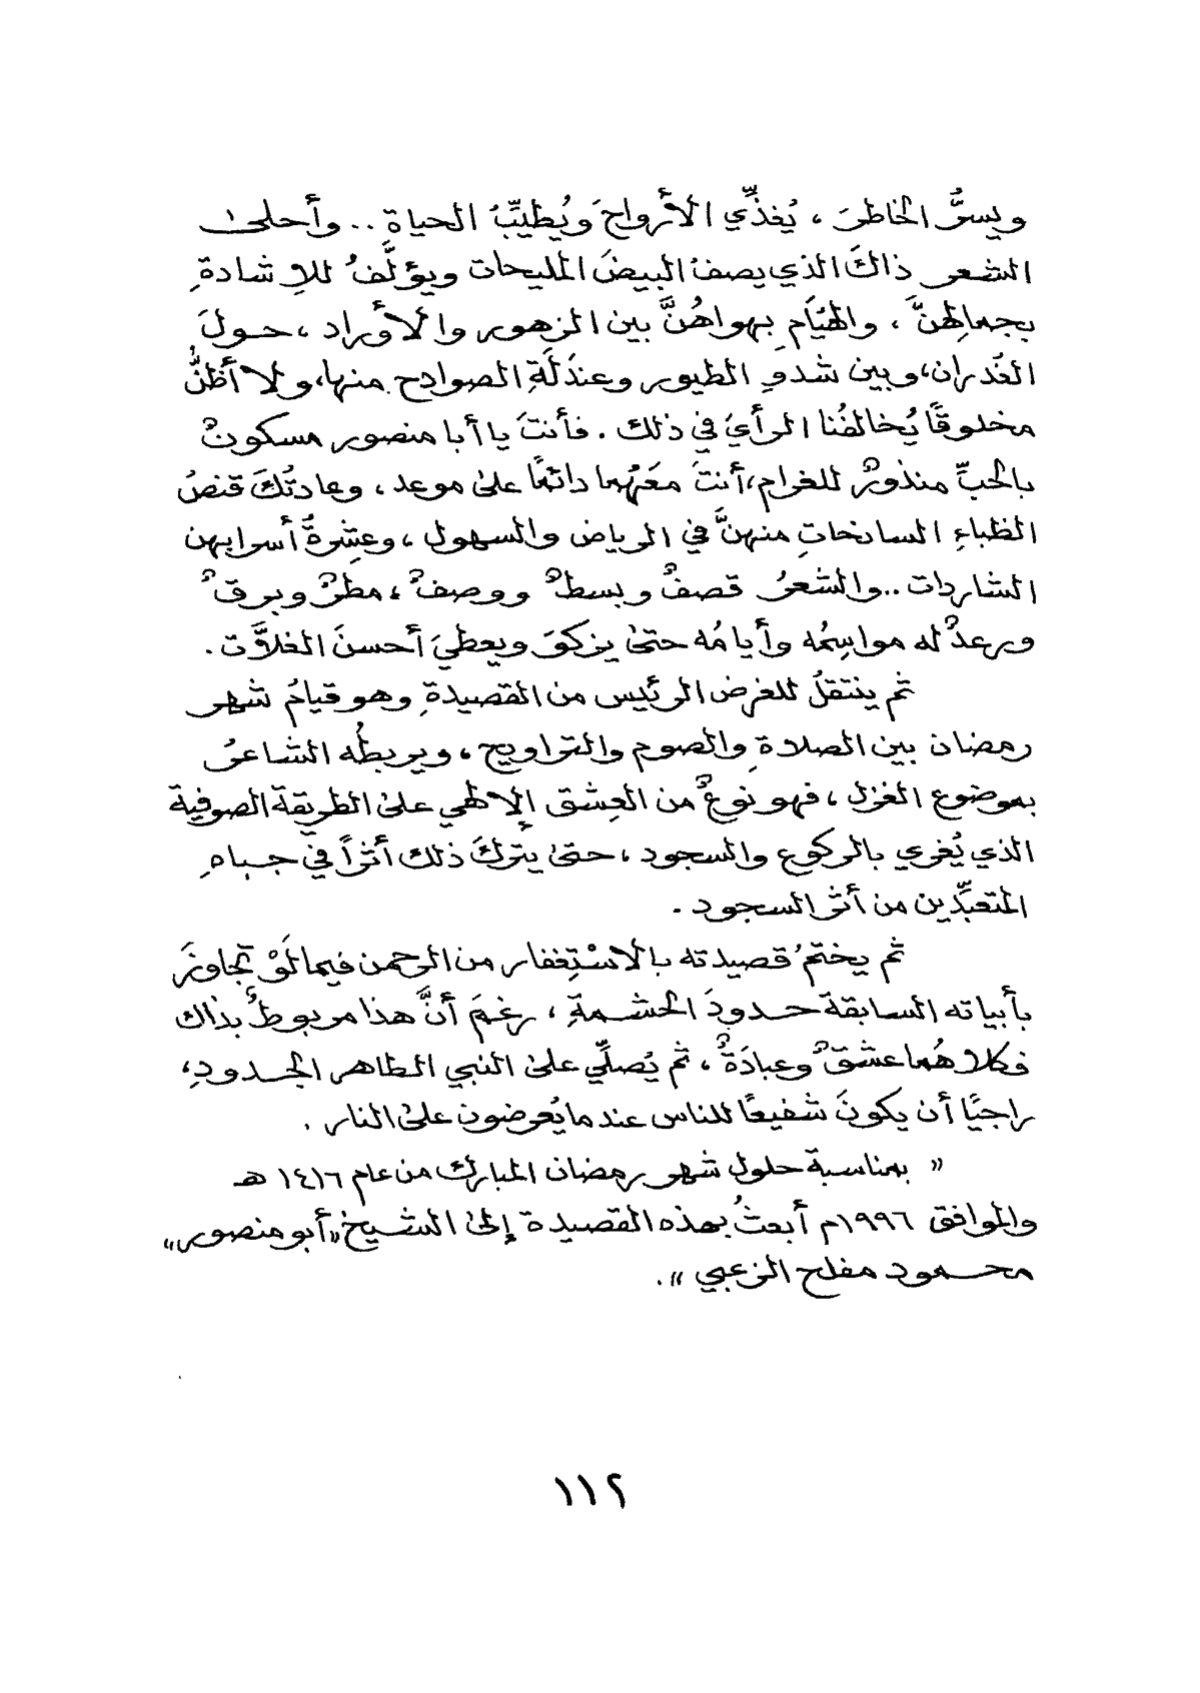 ويسرُّ الخاطرَ ، يُغذِّي الأرواحَ ويُطيِّبُ الحياةِ .. وأحلىٰ
الشعر ذاكَ الذي يصفُ البيضَ المليحات ويؤلَّفُ للإشادةِ
بجمالِهنَّ ، والهيَامِ بهواهُنَّ بين الزهور والأوراد ، حولَ
الغدران، وبين شدوِ الطيور وعندَلَةِ الصوادح منها، ولا أظنُّ
مخلوقًا يُخالفُنا الرأيَ في ذلك . فأنتَ يا أبا منصور مسكونٌ
بالحبِّ منذورٌ للغرام، أنتَ معَهُما دائمًا علىٰ موعد ، وعادتُكَ قنصُ
الظباءِ السانحاتِ منهنَّ في الرياض والسهول ، وعِشرةُ أسرابهن
الشاردات .. والشعرُ قصفٌ وبسطٌ ووصفٌ ، مطرٌ وبرقٌ
ورعدٌ له مواسِمُه وأيامُه حتىٰ يزكوَ ويعطيَ أحسنَ الغلاَّت .
ثم ينتقلُ للغرض الرئيس من القصيدةِ وهو قيامُ شهر
رمضان بين الصلاةِ والصوم والتراويح ، ويربطُه الشاعرُ
بموضوع الغزل ، فهو نوعٌ من العِشق الإلهي علىٰ الطريقة الصوفية
الذي يُغري بالركوع والسجود ، حتىٰ يتركَ ذلك أثراً في جباهِ
المتعبِّدين من أثر السجود .
ثم يختمُ قصيدته بالاسْتِغفار من الرحمن فيما لَوْ تجاوزَ
بأبياته السابقة حدودَ الحشمةِ ، رغمَ أنَّ هذا مربوطٌ بذاك
فكلاهُما عشقٌ وعبادَةٌ ، ثم يُصلِّي علىٰ النبي الطاهر الجدودِ،
راجيًا أن يكونَ شفيعًا للناس عندما يُعرضون علىٰ النار .
« بمناسبة حلول شهر رمضان المبارك من عام ١٤١٦ هـ
والموافق ١٩٩٦م أبعثُ بهذه القصيدة إلىٰ الشيخ «أبو منصور»
محمود مفلح الزعبي » .
١١٢